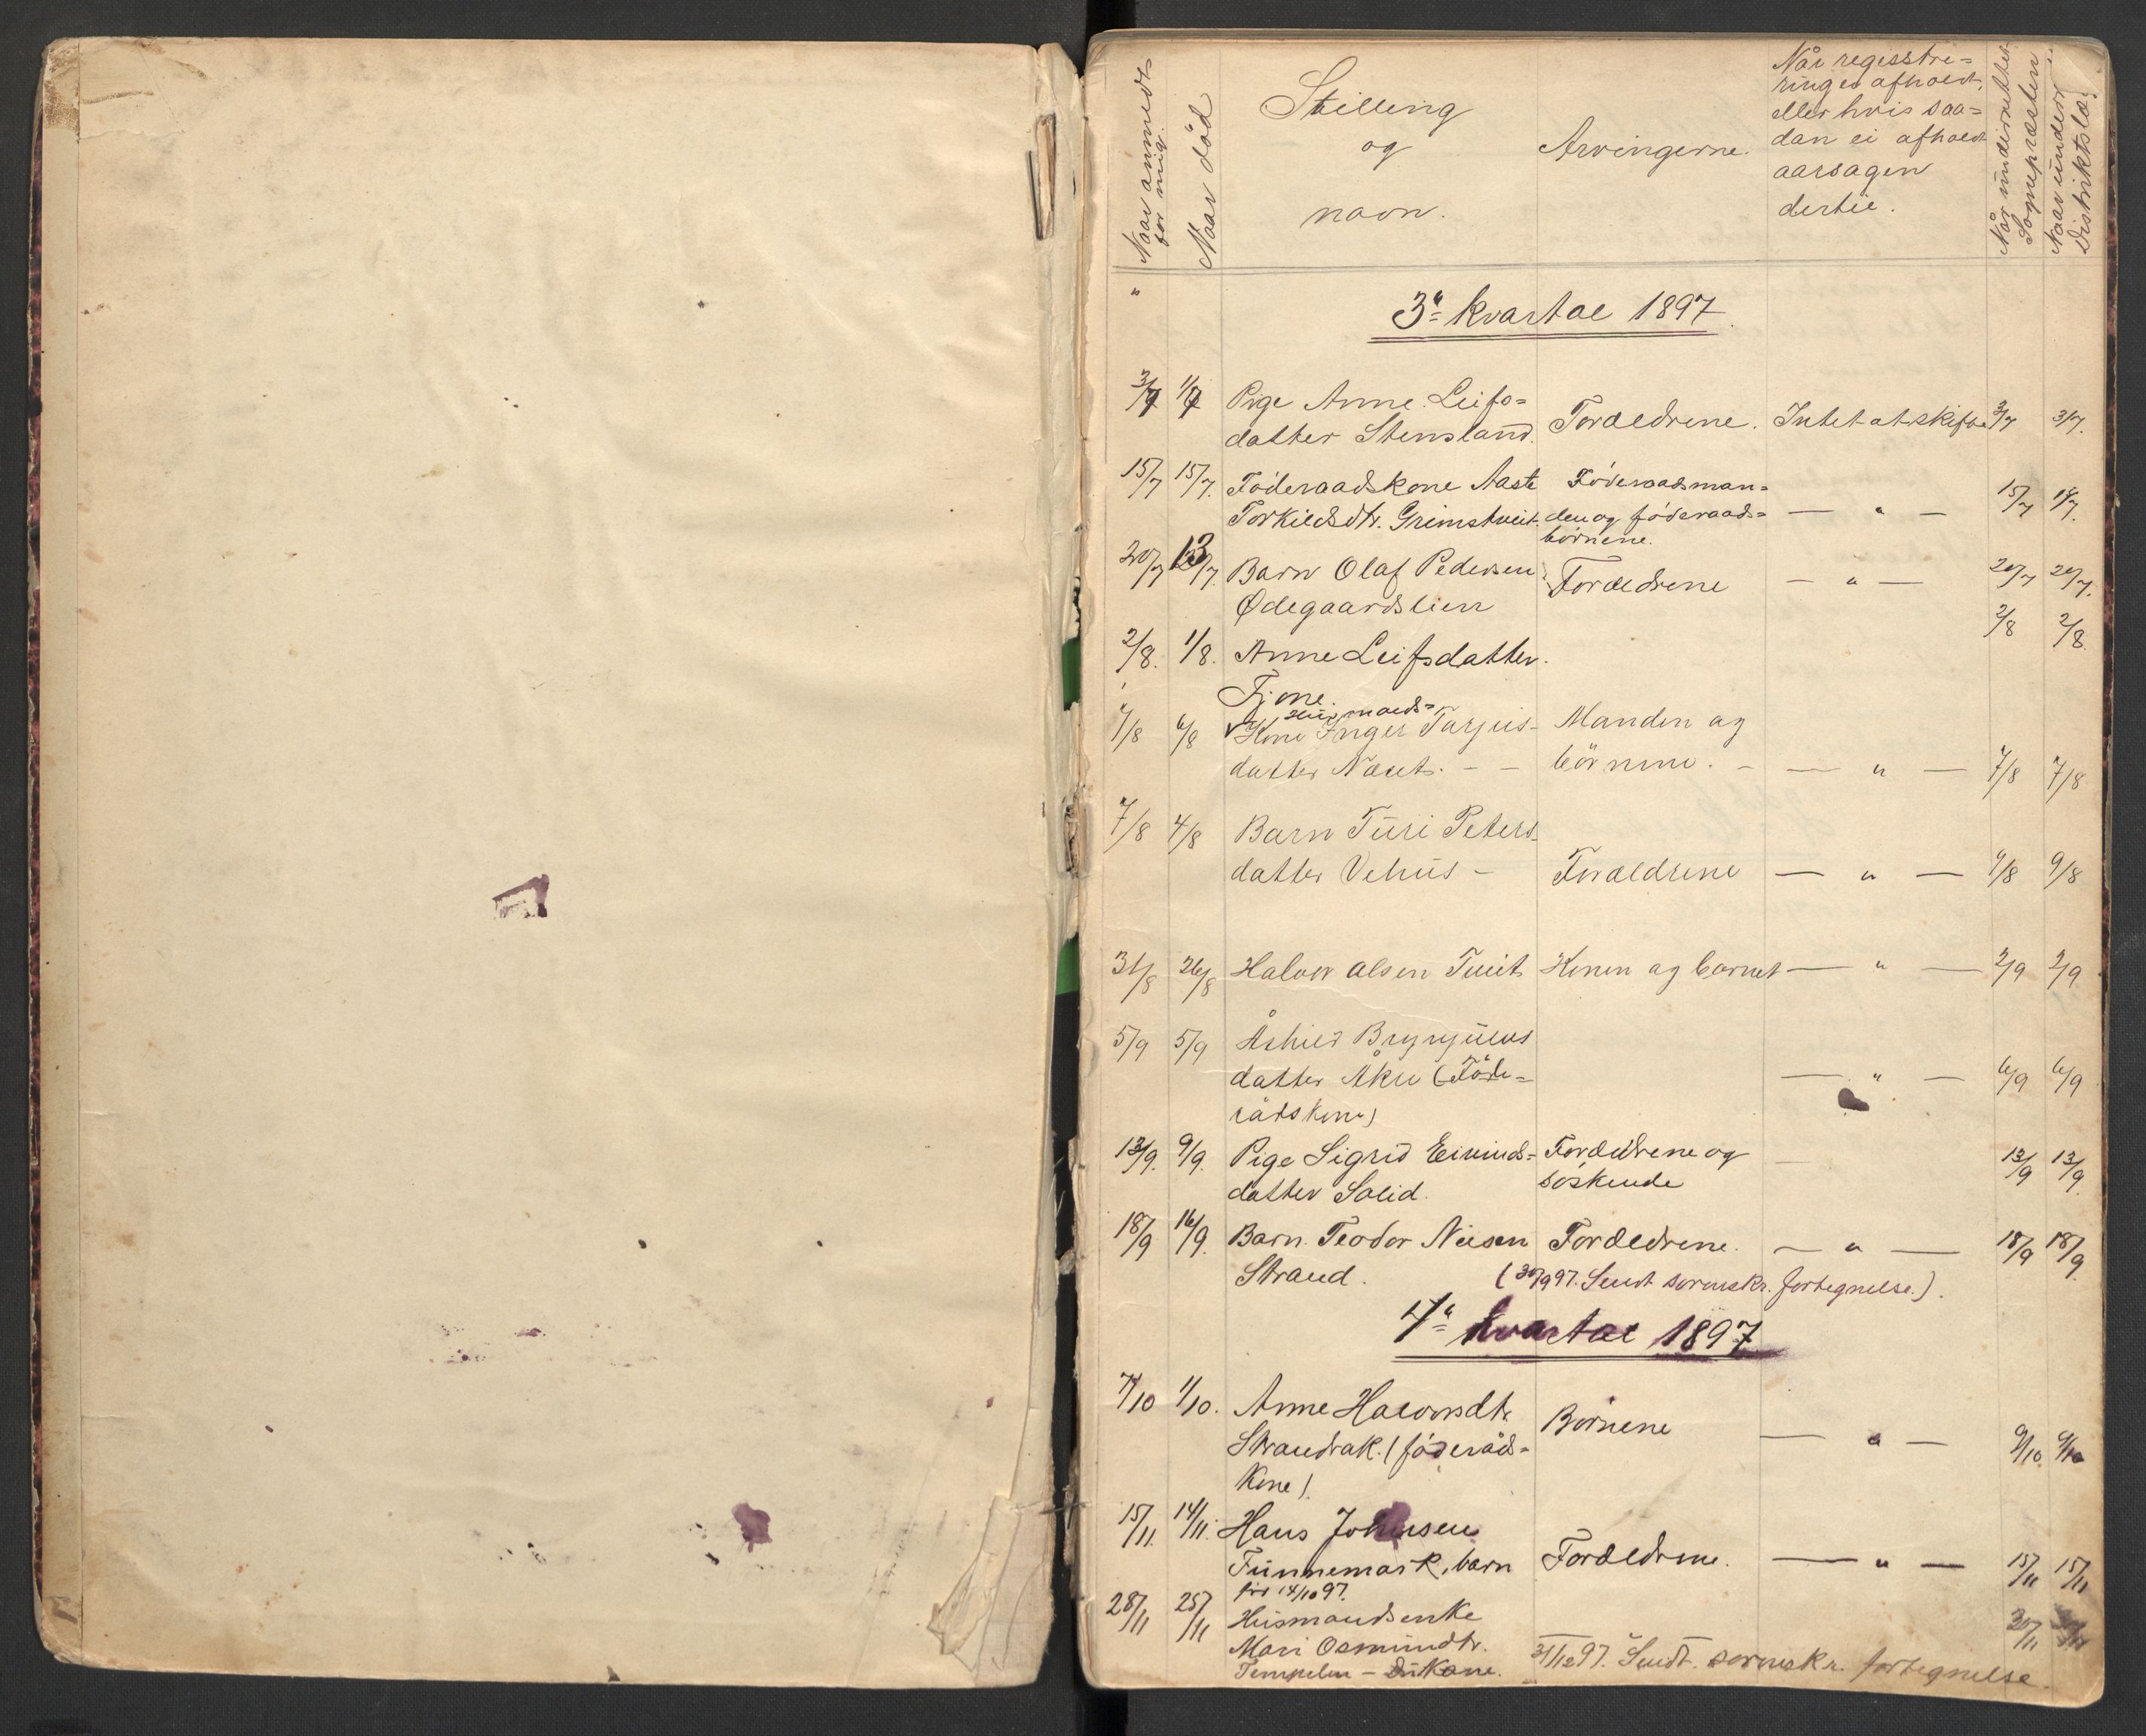 Naar anmeldt
for mig.
Naar død
Stilling
og
navn.
Arvingerne.
Når registre=
ringen afholdt,
eller hvis saa=
dan ei afholdt
aarsagen
dertil.
Når underrettet
Sognepræsten
Naar underr.
Distriktslæ.
3" kvartal 1897.
3/7 1/7 Pige Anne Leifs=
datter Stensland. Forældrene. Intet at skifte 3/7 3/7.
15/7 15/7. Föderaadskone Aaste Föderaadsman=
Torkildsdtr. Grimstveit. den og föderaads= — " — 15/7
börnene.
20/7 13/7. Barn Olaf Pedersen
Ødegaardslien Forældrene — " — 20/7 20/7.
2/8. 1/8. Anne Leifsdatter. 2/8 2/8.
Fjone.
Husmands=
7/8 6/8 Kone Inger Tarjus- Manden og
datter Næset. - - börnene. - — " — 7/8 7/8
7/8 4/8 Barn Turi Peters-
datter Vehus - Forældrene — " — 9/8 9/8
31/8 26/8 Halvor Olsen Tveit Konen og barnet — " — 2/9 2/9
5/9 5/9 Åshild Brynjuls
datter Åkre (Föde=
rådskone) — " — 6/9 6/9
13/9. 9/9. Pige Sigrid Eivinds= Forældrene og
datter Solid. söskende — 13/9 13/9.
18/9 16/9. Barn Teodor Nilsen Forældrene. — " — 18/9 18/9.
Strand. (30/9 97. Sendt sorenskr. fortegnelse.).
4" kvartal 1897
7/10 1/10. Anne Halvorsdtr.
Strandrak. (föderåds= Börnene — " — 9/10. 9/10
kone).
15/11. 14/11. Hans Johnsen
Tunnemark, barn Forældrene. — " — 15/11 15/11
född 14/10 97.
28/11 25/11 Husmandsenke 30/11 30/11
Mari Osmundtr.
Tempelen - 31/12 97. Sendt sorenskr. fortegnelse.